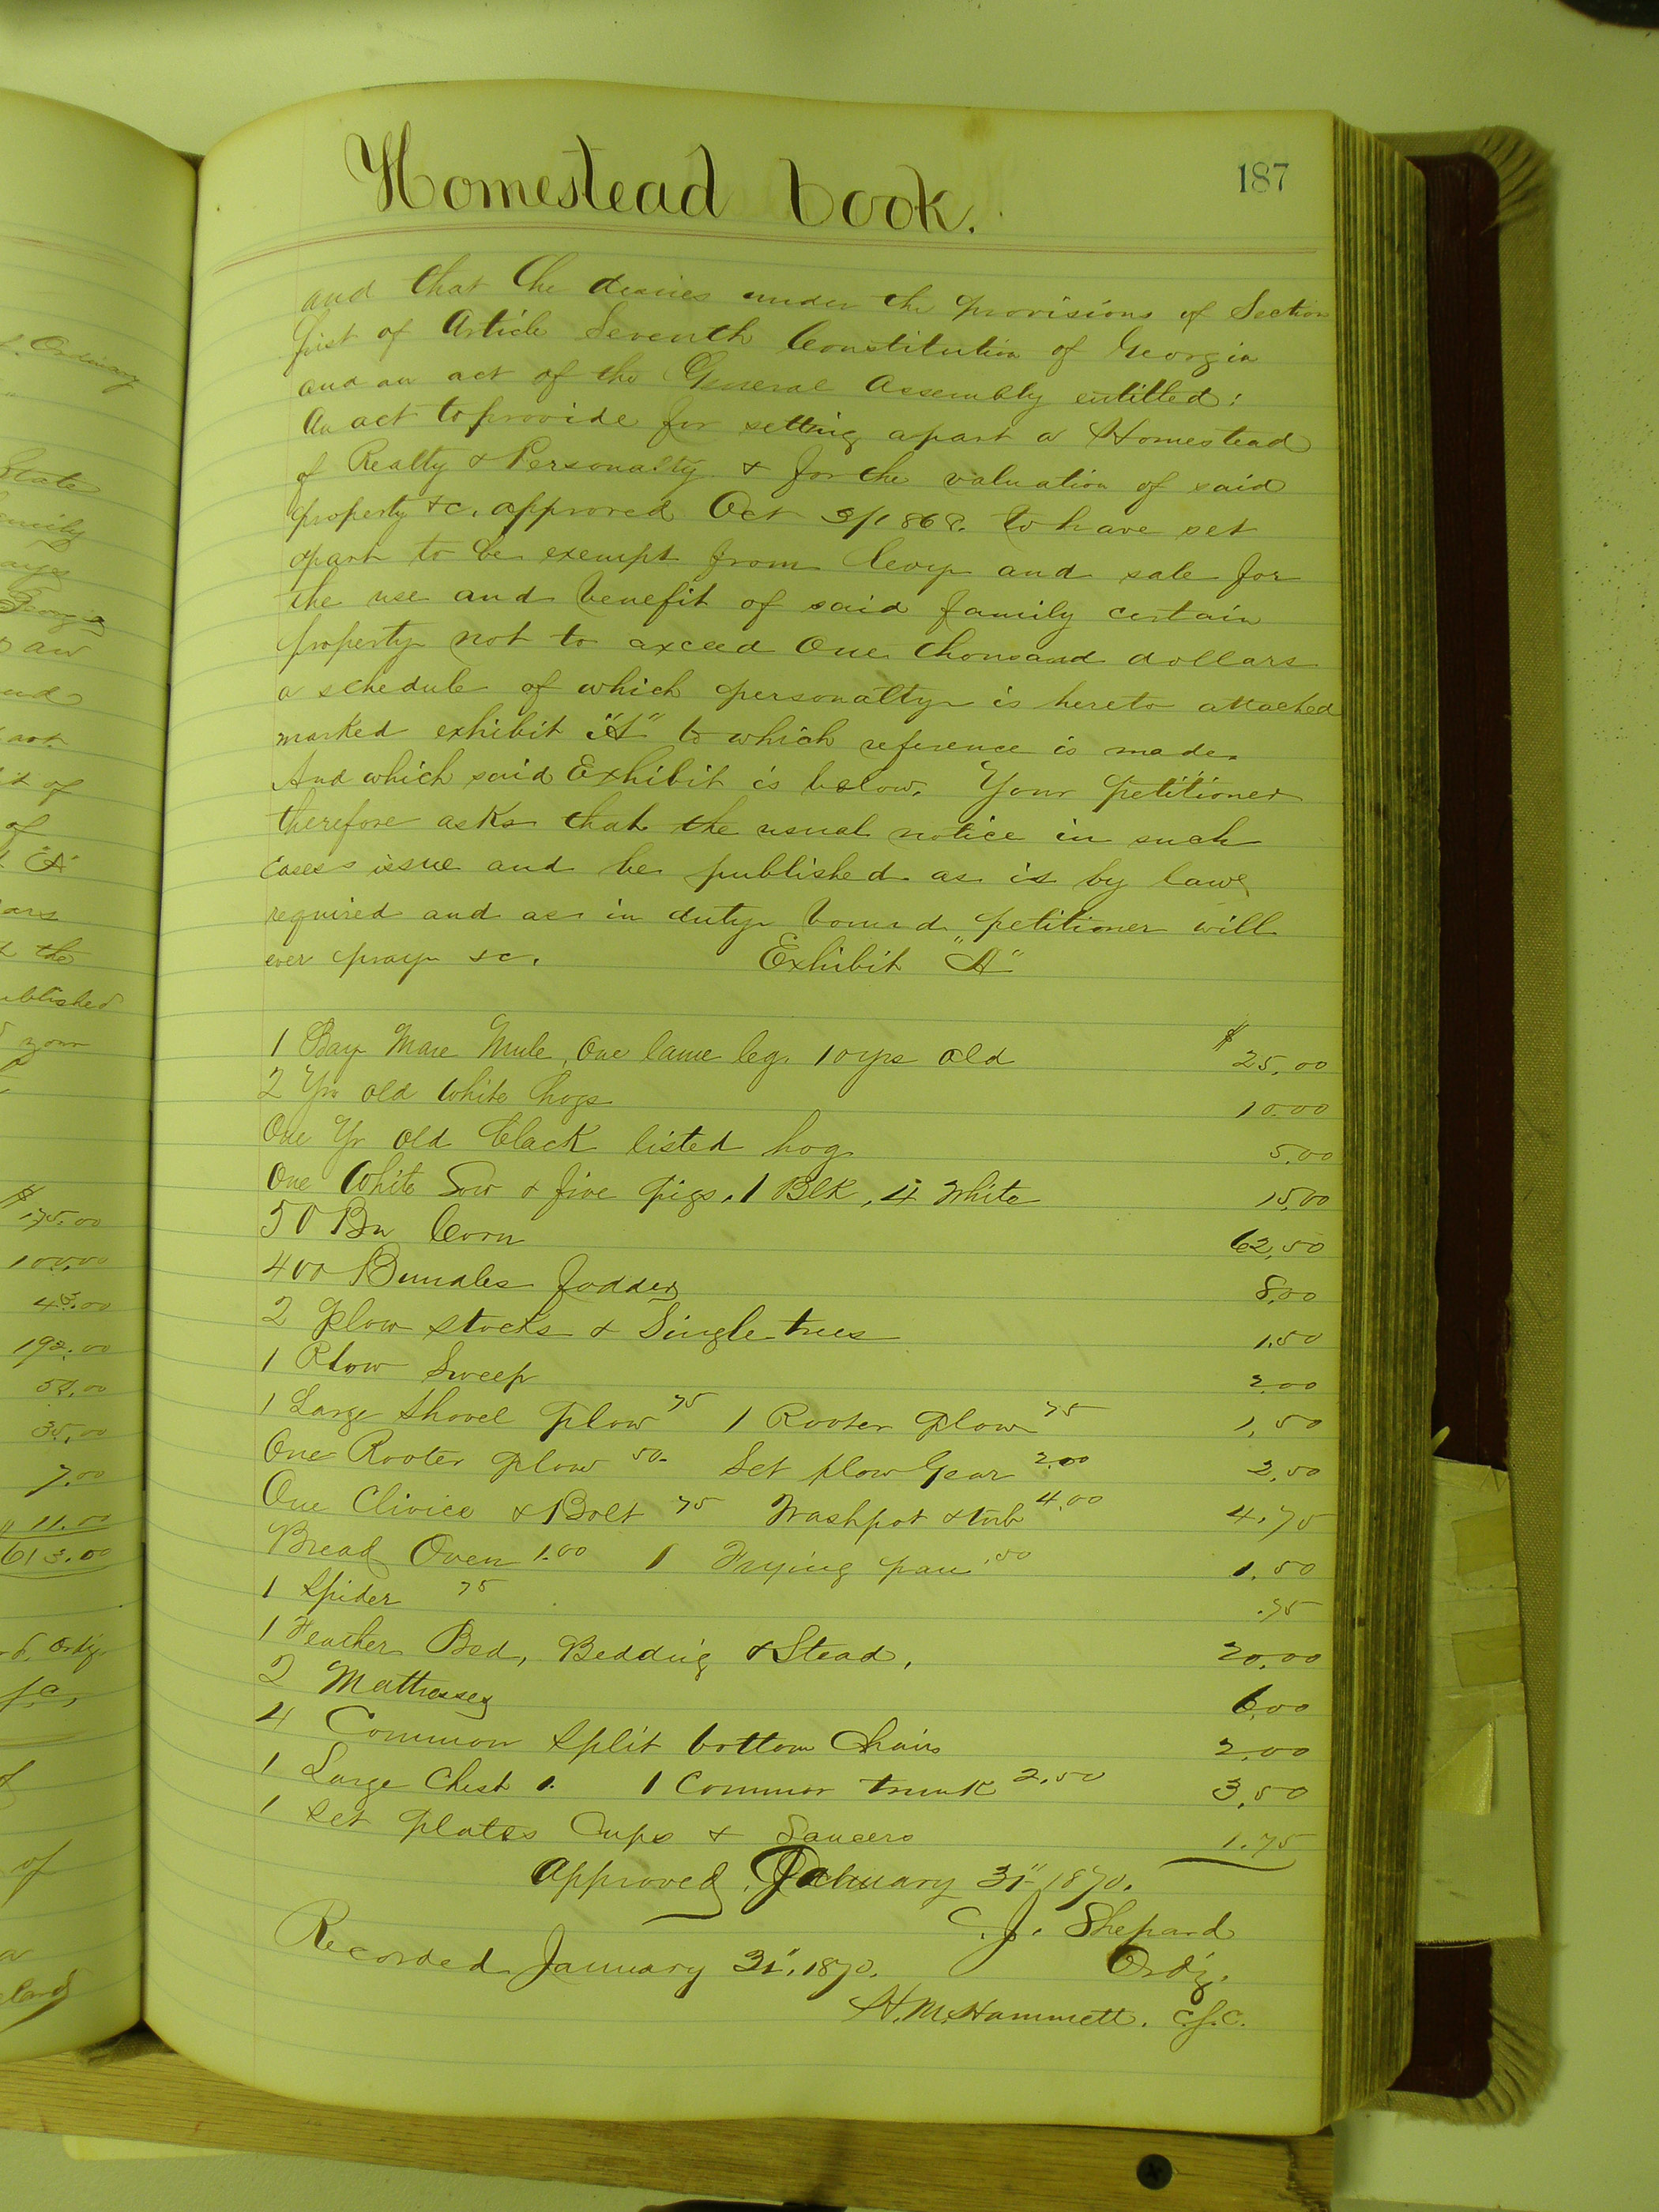 Homestead book.
187
and that he desires under the provisions of Section
first of Article Seventh Constitution of Georgia
and an act of the General Assembly entitled:
An act to provide for setting apart a Homestead
of Realty & Personalty & for the valuation of said
property &c. approved Oct 3/1868. to have set
apart to be exempt from levy and sale for
the use and benefit of said family certain
property not to exceed One thousand dollars
a schedule of which personalty is hereto attached
marked exhibit "A" to which reference is made.
And which said Exhibit is below. Your petitioner
therefore asks that the usual notice in such
cases issue and be published as is by law
required and as in duty bound petitioner will
ever pray &c. Exhibit "A"
1 Bay Mare Mule, One lame leg. 10 yrs old $25.00
2 Yr old White hogs 10.00
One Yr old black listed hog 5.00
One White Sow & five pigs. 1 Blk, 4 White 15.00
50 Bu Corn 62.50
400 Bundles fodder 8.00
2 Plow stocks & Single-trees 1.50
1 Plow Sweep 2.00
1 Large Shovel plow 75 1 Rooter plow 75 1.50
One Rooter plow 50. Set plow Gear 2.00 2.50
One Clivice & Bolt 75 Washpot & tub 4.00 4.75
Bread Oven 1.00 1 Frying pan .50 1.50
1 Spider 75 .75
1 Feather Bed, Bedding & Stead, 20.00
2 Mattresses 6.00
4 Common split bottom Chairs 2.00
1 Large Chest 1. 1 Common trunk 2.50 3.50
1 set plates Cups & Saucers 1.75
Approved January 31" 1870.
C. J. Shepard
Ordy.
Recorded January 31". 1870.
H. M. Hammett. C.S.C.
Ordinary
State
family
Georgia
of
of
"A"
the
published
your
$175.00
100.00
192.00
7.00
11.00
613.00
Ordy.
of